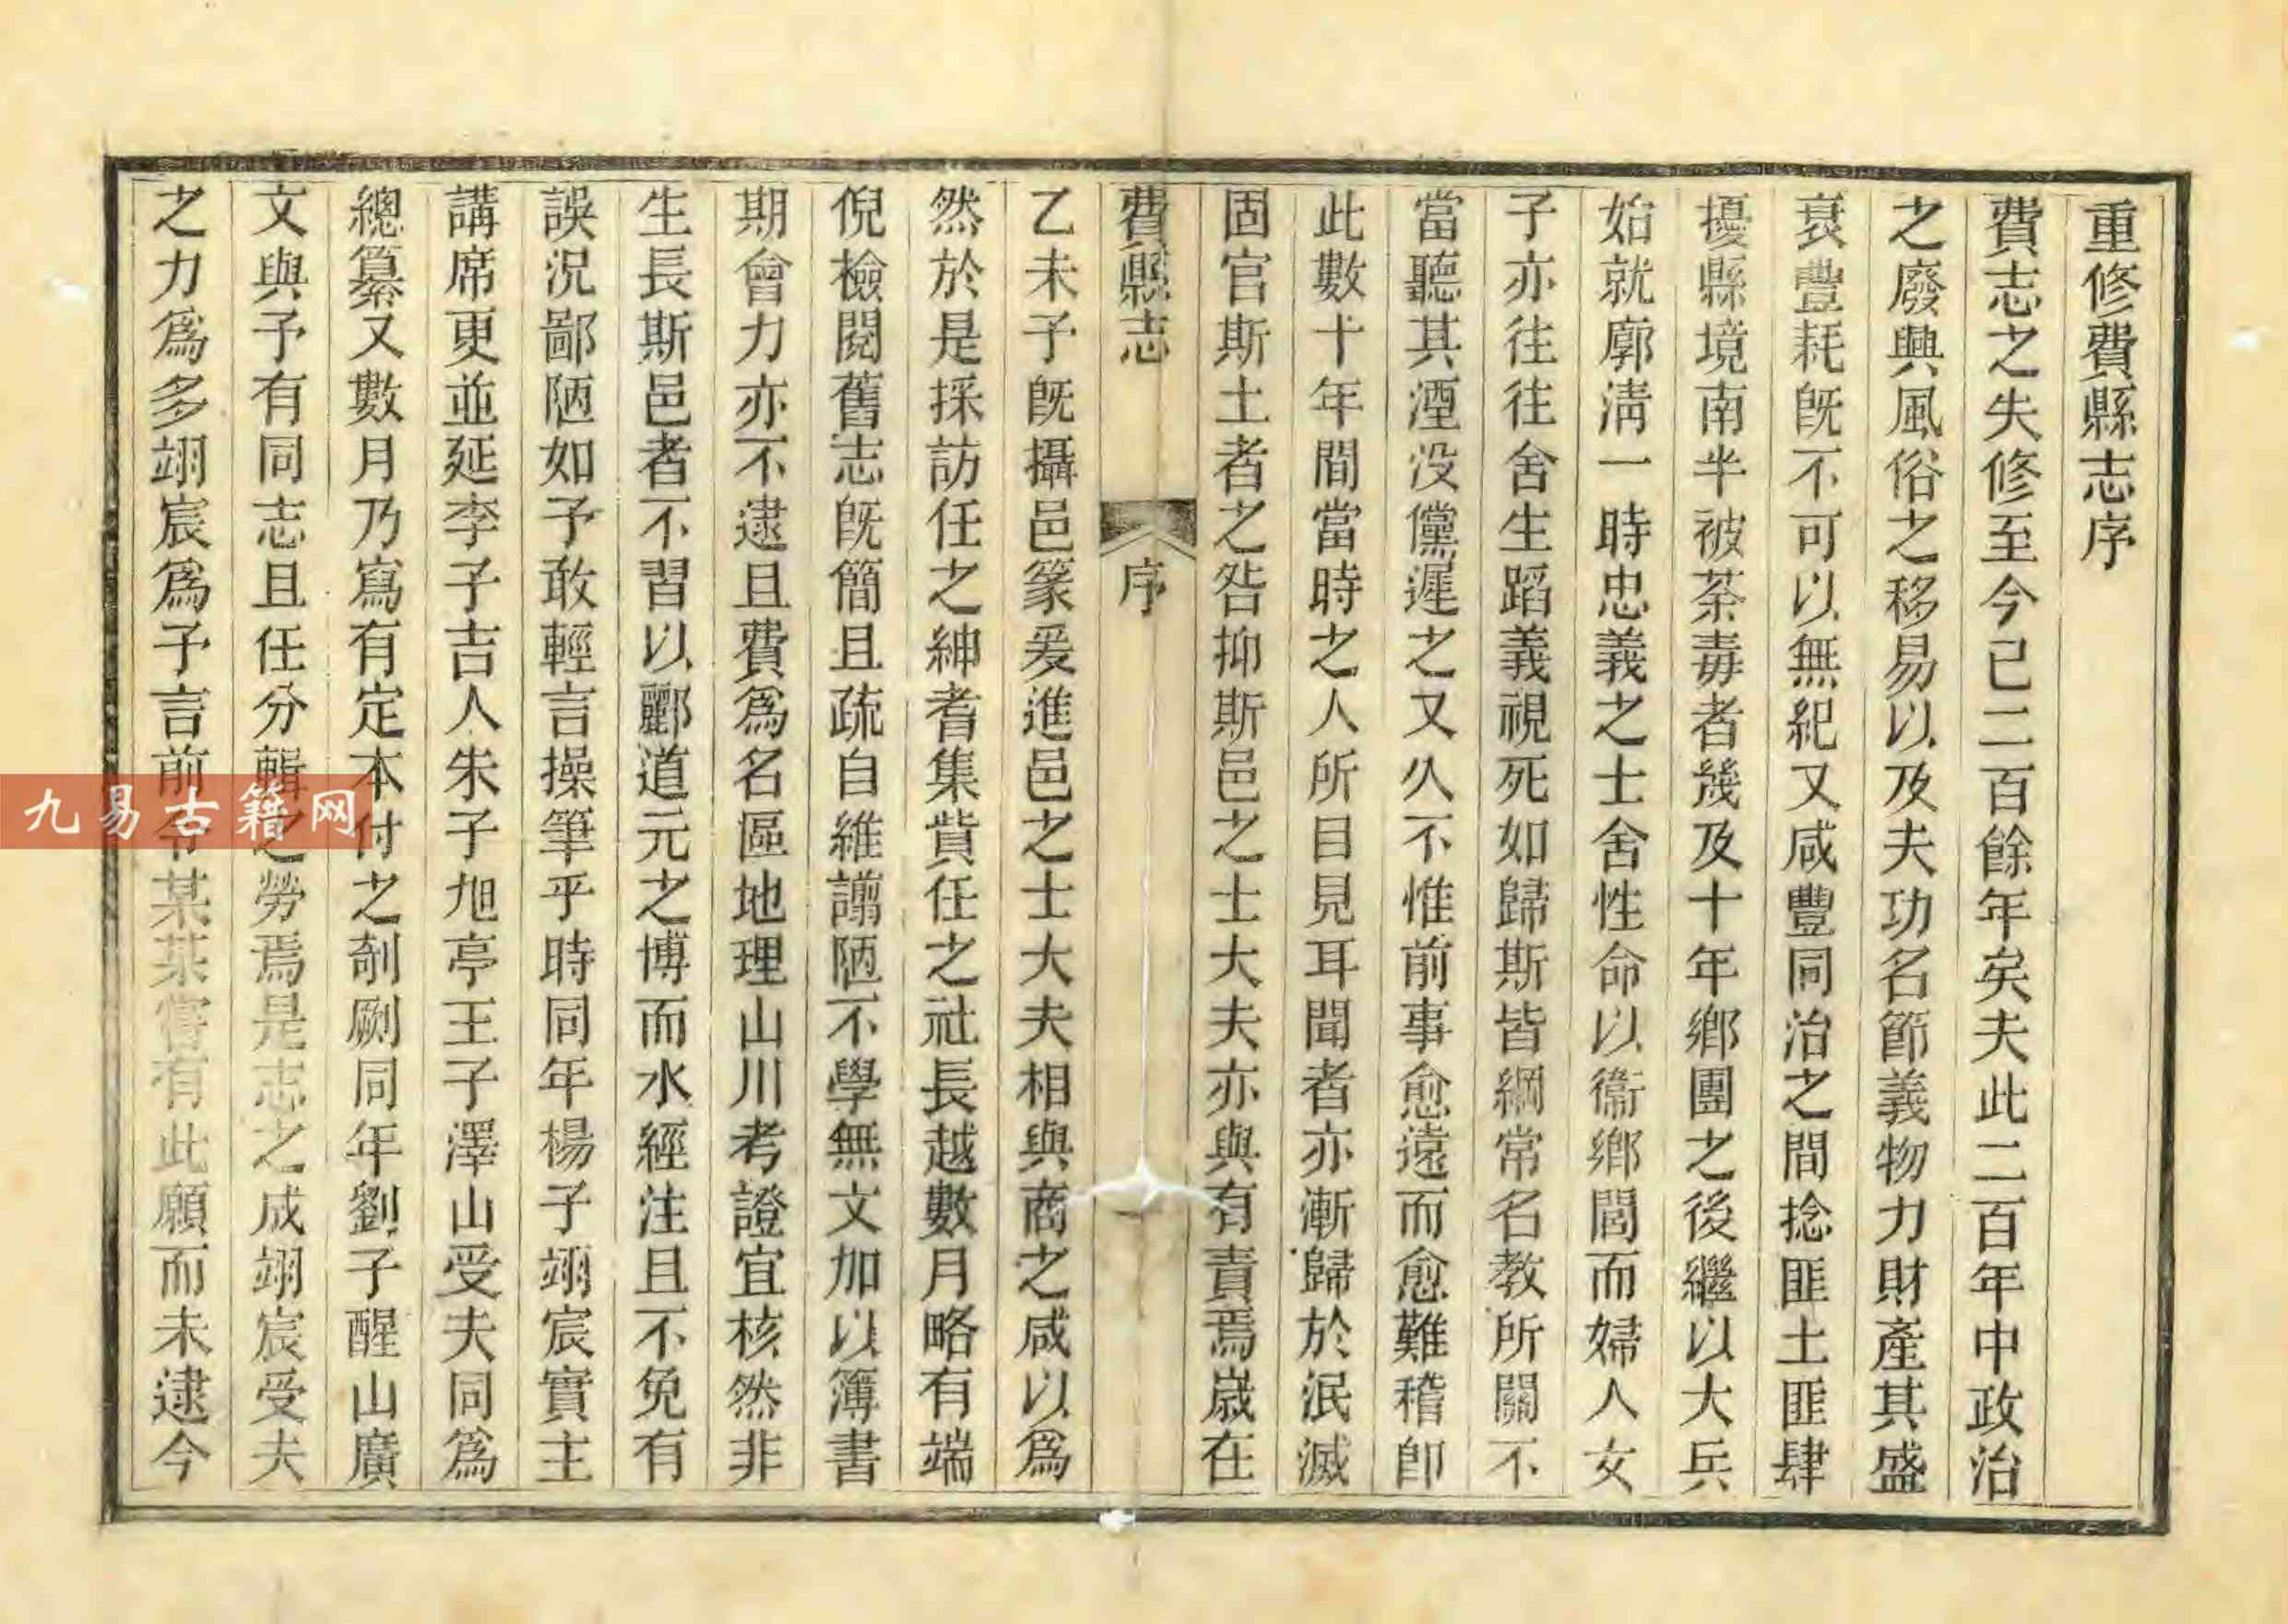 重修費縣志序
費志之失修至今已二百餘年矣夫此二百年中政治
之廢興風俗之移易以及夫功名節義物力財產其盛
衰豐耗旣不可以無紀又咸豐同治之間捻匪土匪肆
擾縣境南半被荼毒者幾及十年鄉團之後繼以大兵
始就廓淸一時忠義之士舍性命以衞鄉閭而婦人女
子亦往往舍生蹈義視死如歸斯皆綱常名教所關不
當聽其湮没儻遲之又久不惟前事愈遠而愈難稽卽
此數十年間當時之人所目見耳聞者亦漸歸於泯滅
固官斯土者之咎抑斯邑之士大夫亦與有責焉歲在
費縣志
序
乙未予旣攝邑篆爰進邑之士大夫相與商之咸以爲
然於是採訪任之紳耆集貲任之社長越數月略有端
倪檢閱舊志旣簡且疏自維譾陋不學無文加以簿書
期會力亦不逮且費爲名區地理山川考證宜核然非
生長斯邑者不習以酈道元之博而水經注且不免有
誤況鄙陋如予敢輕言操筆乎時同年楊子翊宸實主
講席更並延李子吉人朱子旭亭王子澤山受夫同爲
總纂又數月乃寫有定本付之剞劂同年劉子醒山廣
文與予有同志且任分輯之勞焉是志之成翊宸受夫
之力爲多翊宸爲予言前令某某嘗有此願而未逮今
九易古籍网